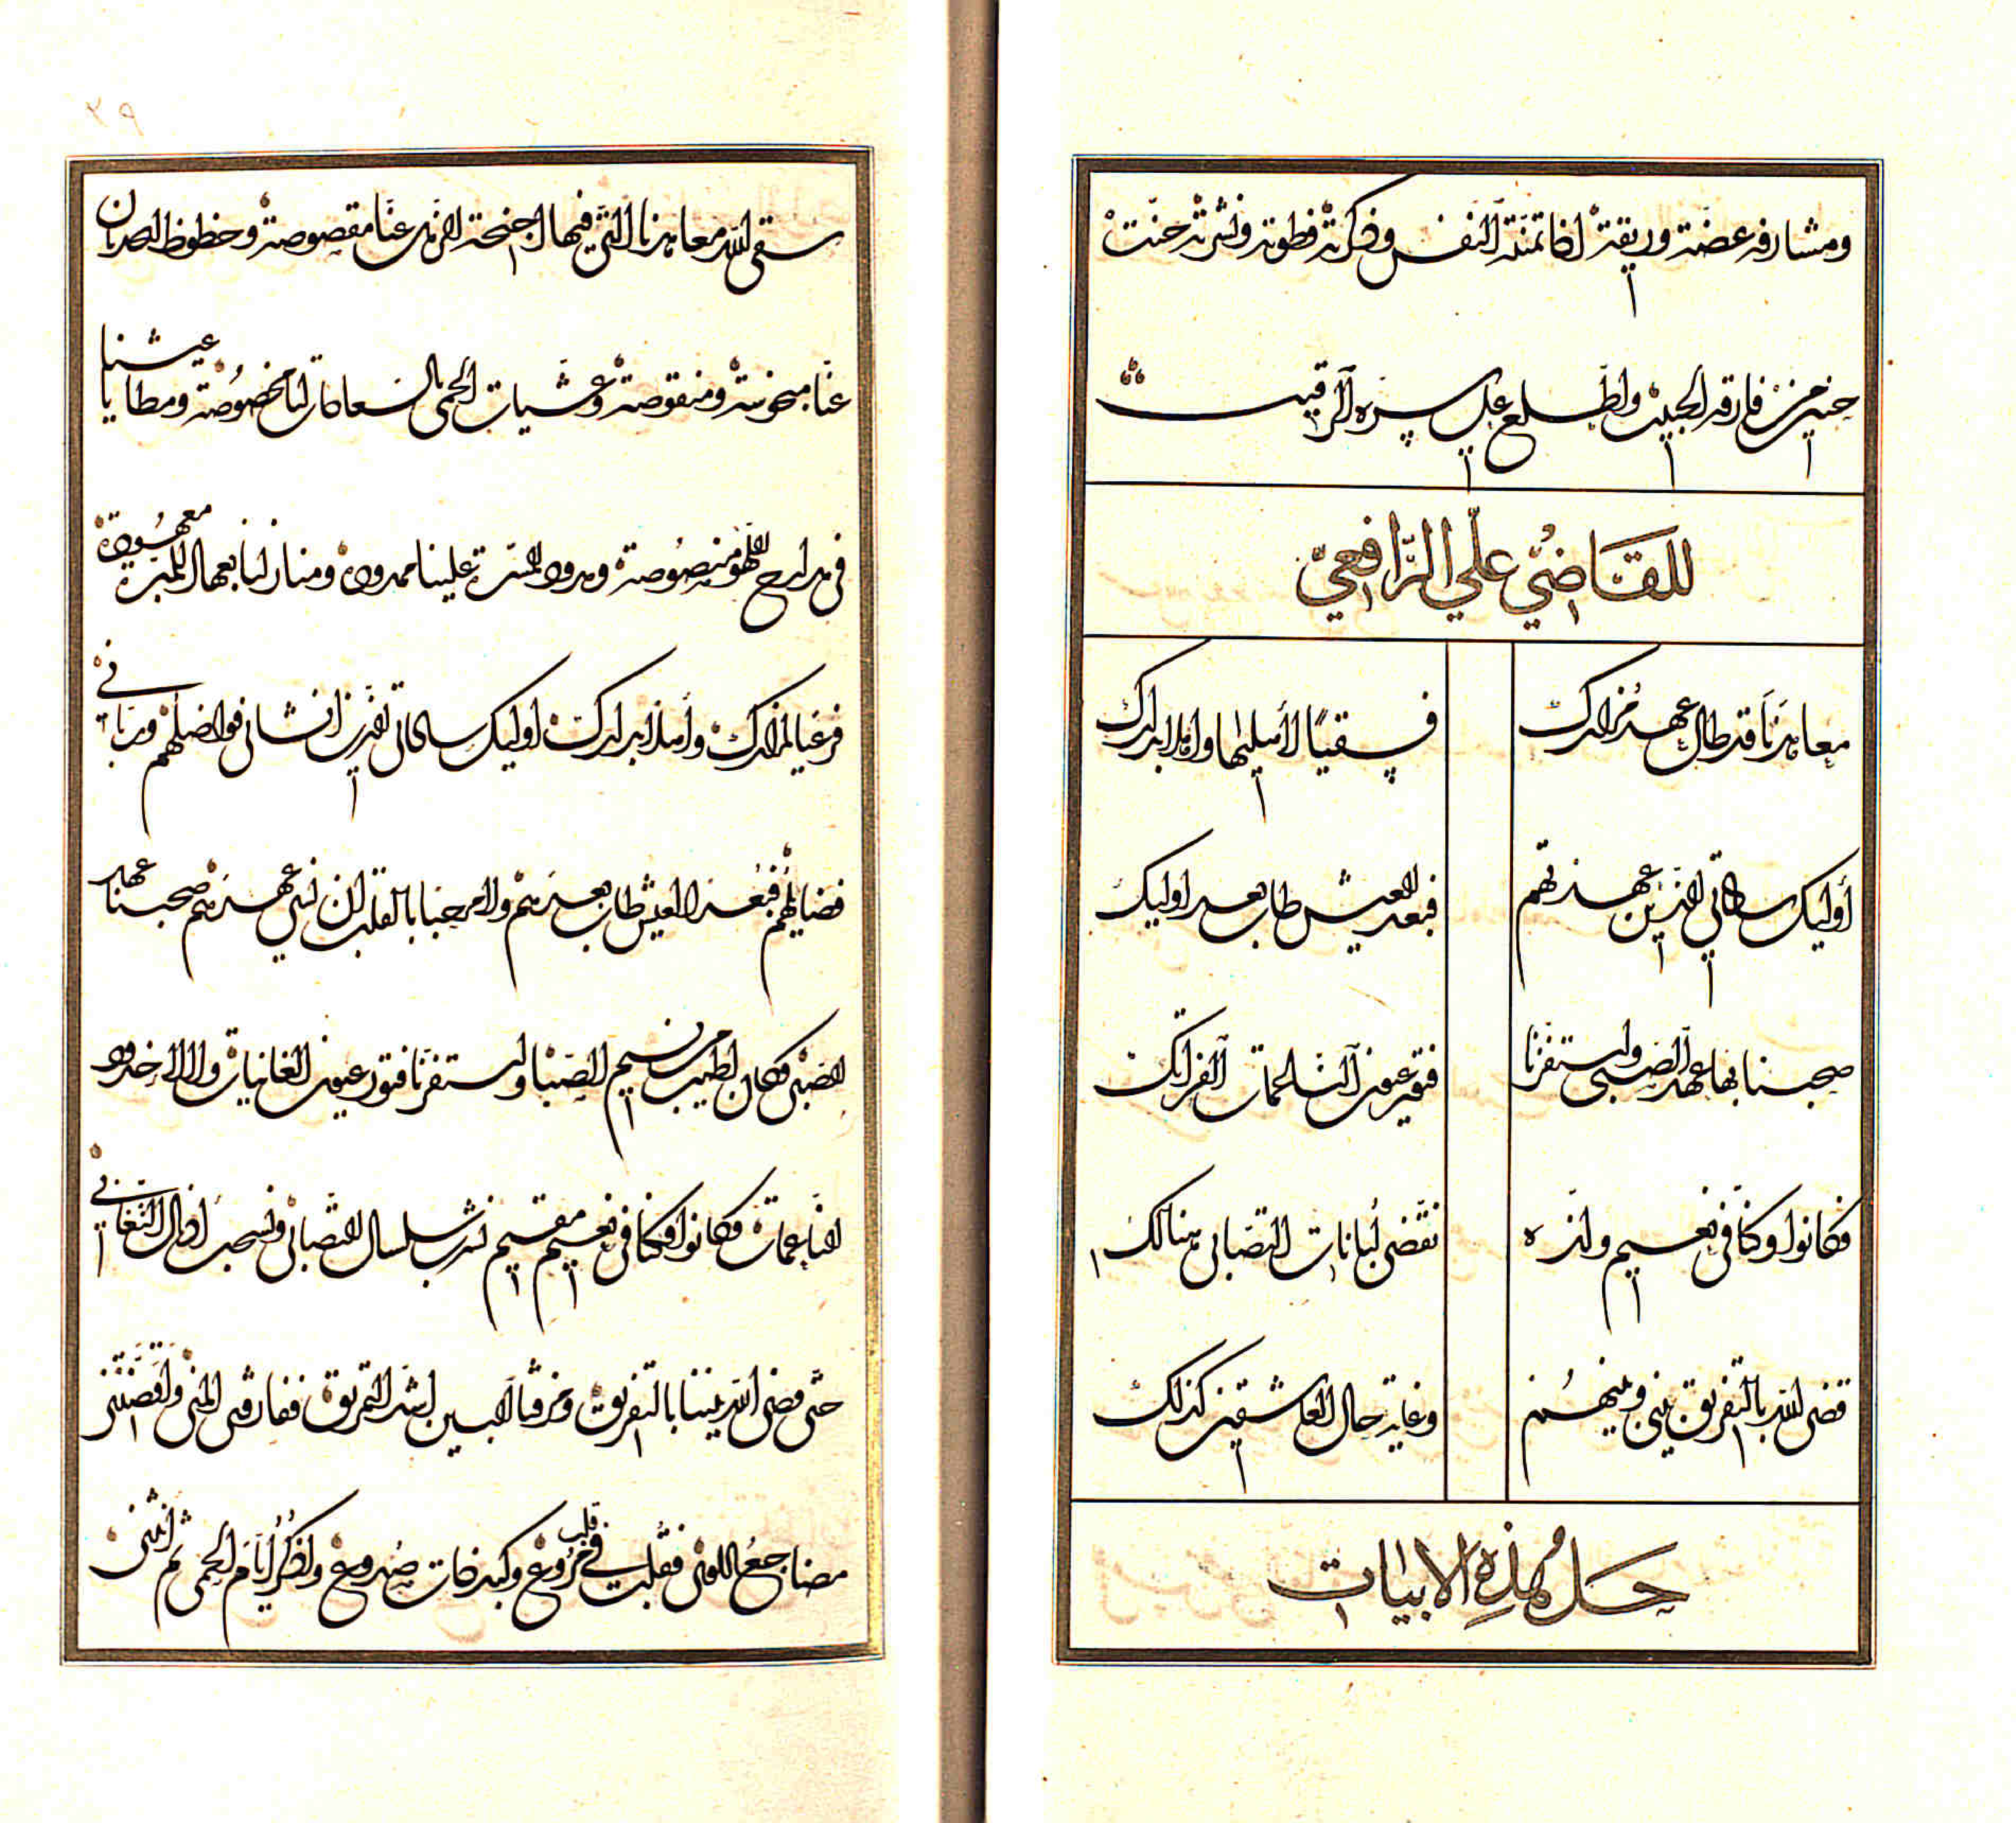 ومشارفه غضة وريقة اذا تمنته النفس وذكرته فطوته ونشرته حنت
حنين من فارقه الحبيب واطلع على سره الرقيب
للقاضي علي الرافعي
معاهدنا قد طال عهد مزارك
فسقيا لأميالها وأهلا بدارك
أوليك ساداتي الذين عهدتهم
فبعد العيش طاب بعد اوليك
صحبنا بها عهد الصبى واستفزنا
فتور عيون الناعمات الفواتك
فكانوا وكنا في نعيم ولذه
نقضى لبانات التصابى هنالك
قضى الله بالتفريق بيني وبينهم
وغاية حال العاشقين كذلك
حل هذه الابيات
سقى الله معاهدنا التى فيها اجنحة الدهر عنا مقصوصة وحظوظ الحدثان
عنا مبخوسة ومنقوصة وعشيات الحمى بالسعادات لنا مخصوصة ومطايا عيشنا
فى مدارج اللهو منصوصة ومدود المسرة علينا ممدودة ومنازلنا بعهاد المبرة معهودة
فرعيا لمزارك وأهلا بدارك اوليك ساداتى الذين انشانى فواضلهم وربانى
فضايلهم فبعدا لعيش طاب بعدهم ولا مرحبا بالقلب ان نسى عهدهم صحبنا عهد
الصبى فكان اطيب من نسيم الصبا واستفزنا فتور عيون الغانيات ولالا خدود
الناعمات فكانوا وكنا فى نعيم مقيم نشرب سلسال التصابى ونسحب اذيال التغانى
حتى قضى الله بيننا بالتفريق ومزقنا البين اشد التمزيق ففارقنى المنى واقضتنى
مضاجع النوى فقلبت فى قلب مروع وكبد ذات صدوع واذكر ايام الحمى ثم انثنى